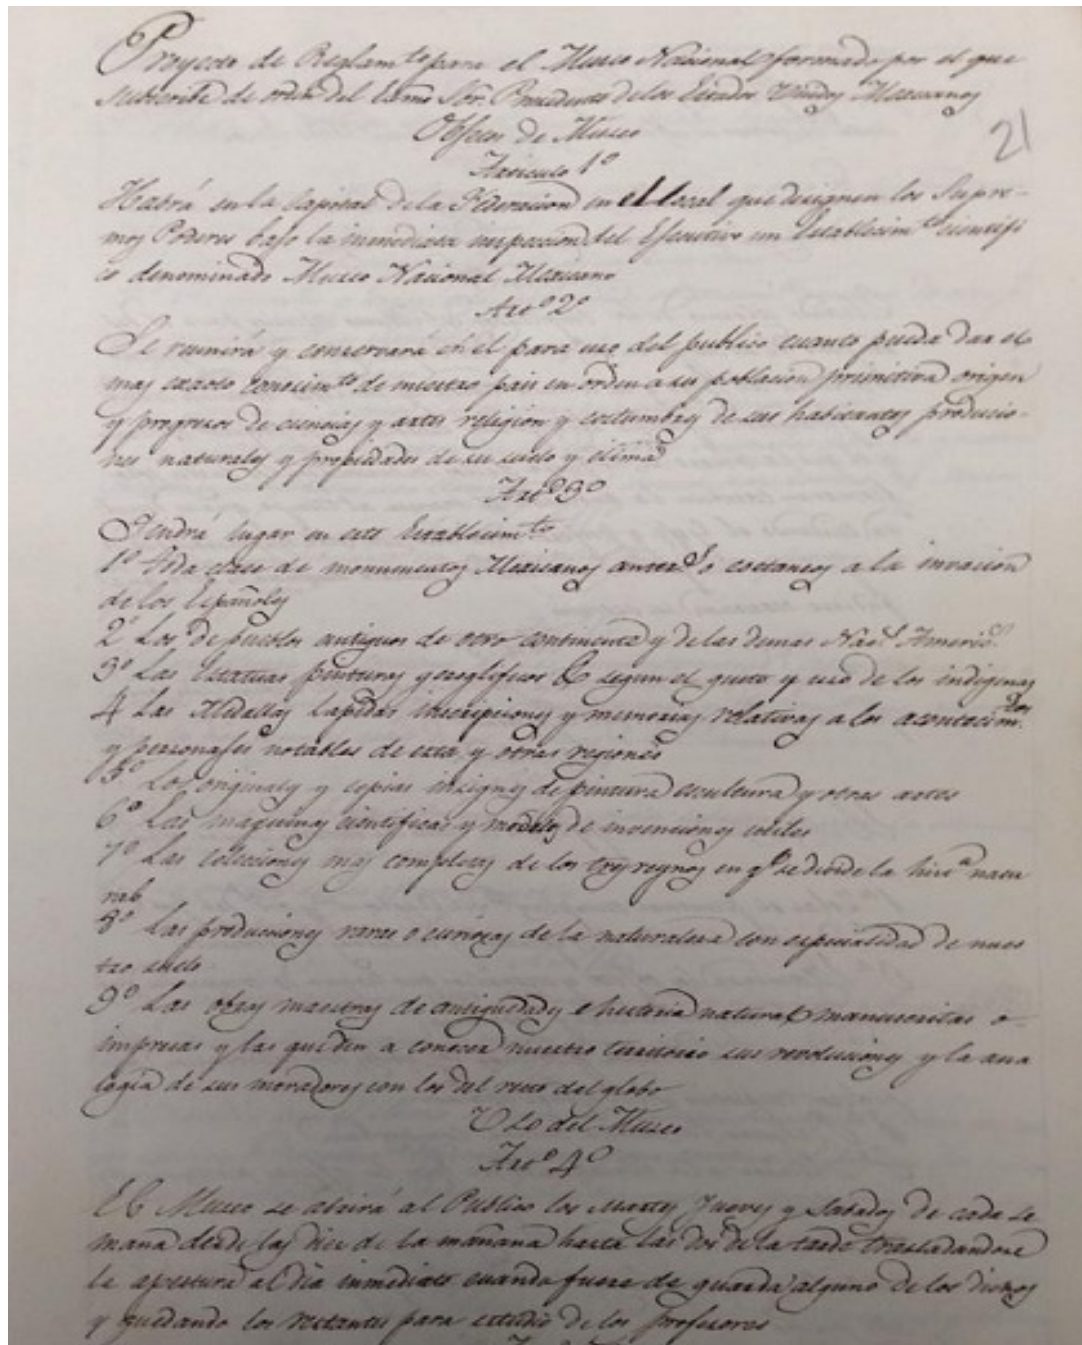 Proyecto de Reglam.to para el Museo Nacional formado por el que
subscribe de orden del Exmo Sor. Presidente de los Estados Unidos Mexicanos
21
Objeto de Museo
Articulo 1º
Habrá en la Capital de la Federacion en el local que designen los Supre-
mos Poderes bajo la inmediata inspeccion del Ejecutivo un Establecim.to cientifi
co denominado Museo Nacional Mexicano
Artº 2º
Se reunirá y conservará en él para uso del publico cuanto pueda dar el
mas exacto conocim.to de nuestro pais en orden a su poblacion primitiva origen
y progresos de ciencias y artes religion y costumbres de sus habitantes produccio-
nes naturales y propiedades de su suelo y clima
Artº 3º
Tendrá lugar en este Establecim.to
1º Toda clase de monumentos Mexicanos anter.s o coetaneos a la invacion
de los Españoles
2º Los de pueblos antiguos de otro continente y de las demas Nac.s Americ.s
3º Las Estatuas pinturas y geroglificos &c segun el gusto y uso de los indigenas
4 Las Medallas lapidas inscripciones y memorias relativas a los acontecim.tos
y personajes notables de esta y otras regiones
5º Los originales y copias insignes de pintura escultura y otras artes
6º Las maquinas cientificas y modelos de invenciones utiles
7º Las colecciones mas completas de los tres reynos en q.e se divide la hist.a natu
ral
8º Las producciones raras o curiosas de la naturaleza con especialidad de nues
tro suelo
9º Las obras maestras de antiguedades e historia natural manuscritas o
impresas y las que den a conocer nuestro territorio sus revoluciones y la ana
logia de sus moradores con los del resto del globo
Uso del Museo
Artº 4º
El Museo se abrirá al Publico los Martes Jueves y Sabados de cada se
mana desde las diez de la mañana hasta las dos de la tarde trasladandose
la apertura al dia inmediato cuando fuere de guarda alguno de los dichos
y quedando los restantes para estudio de los profesores